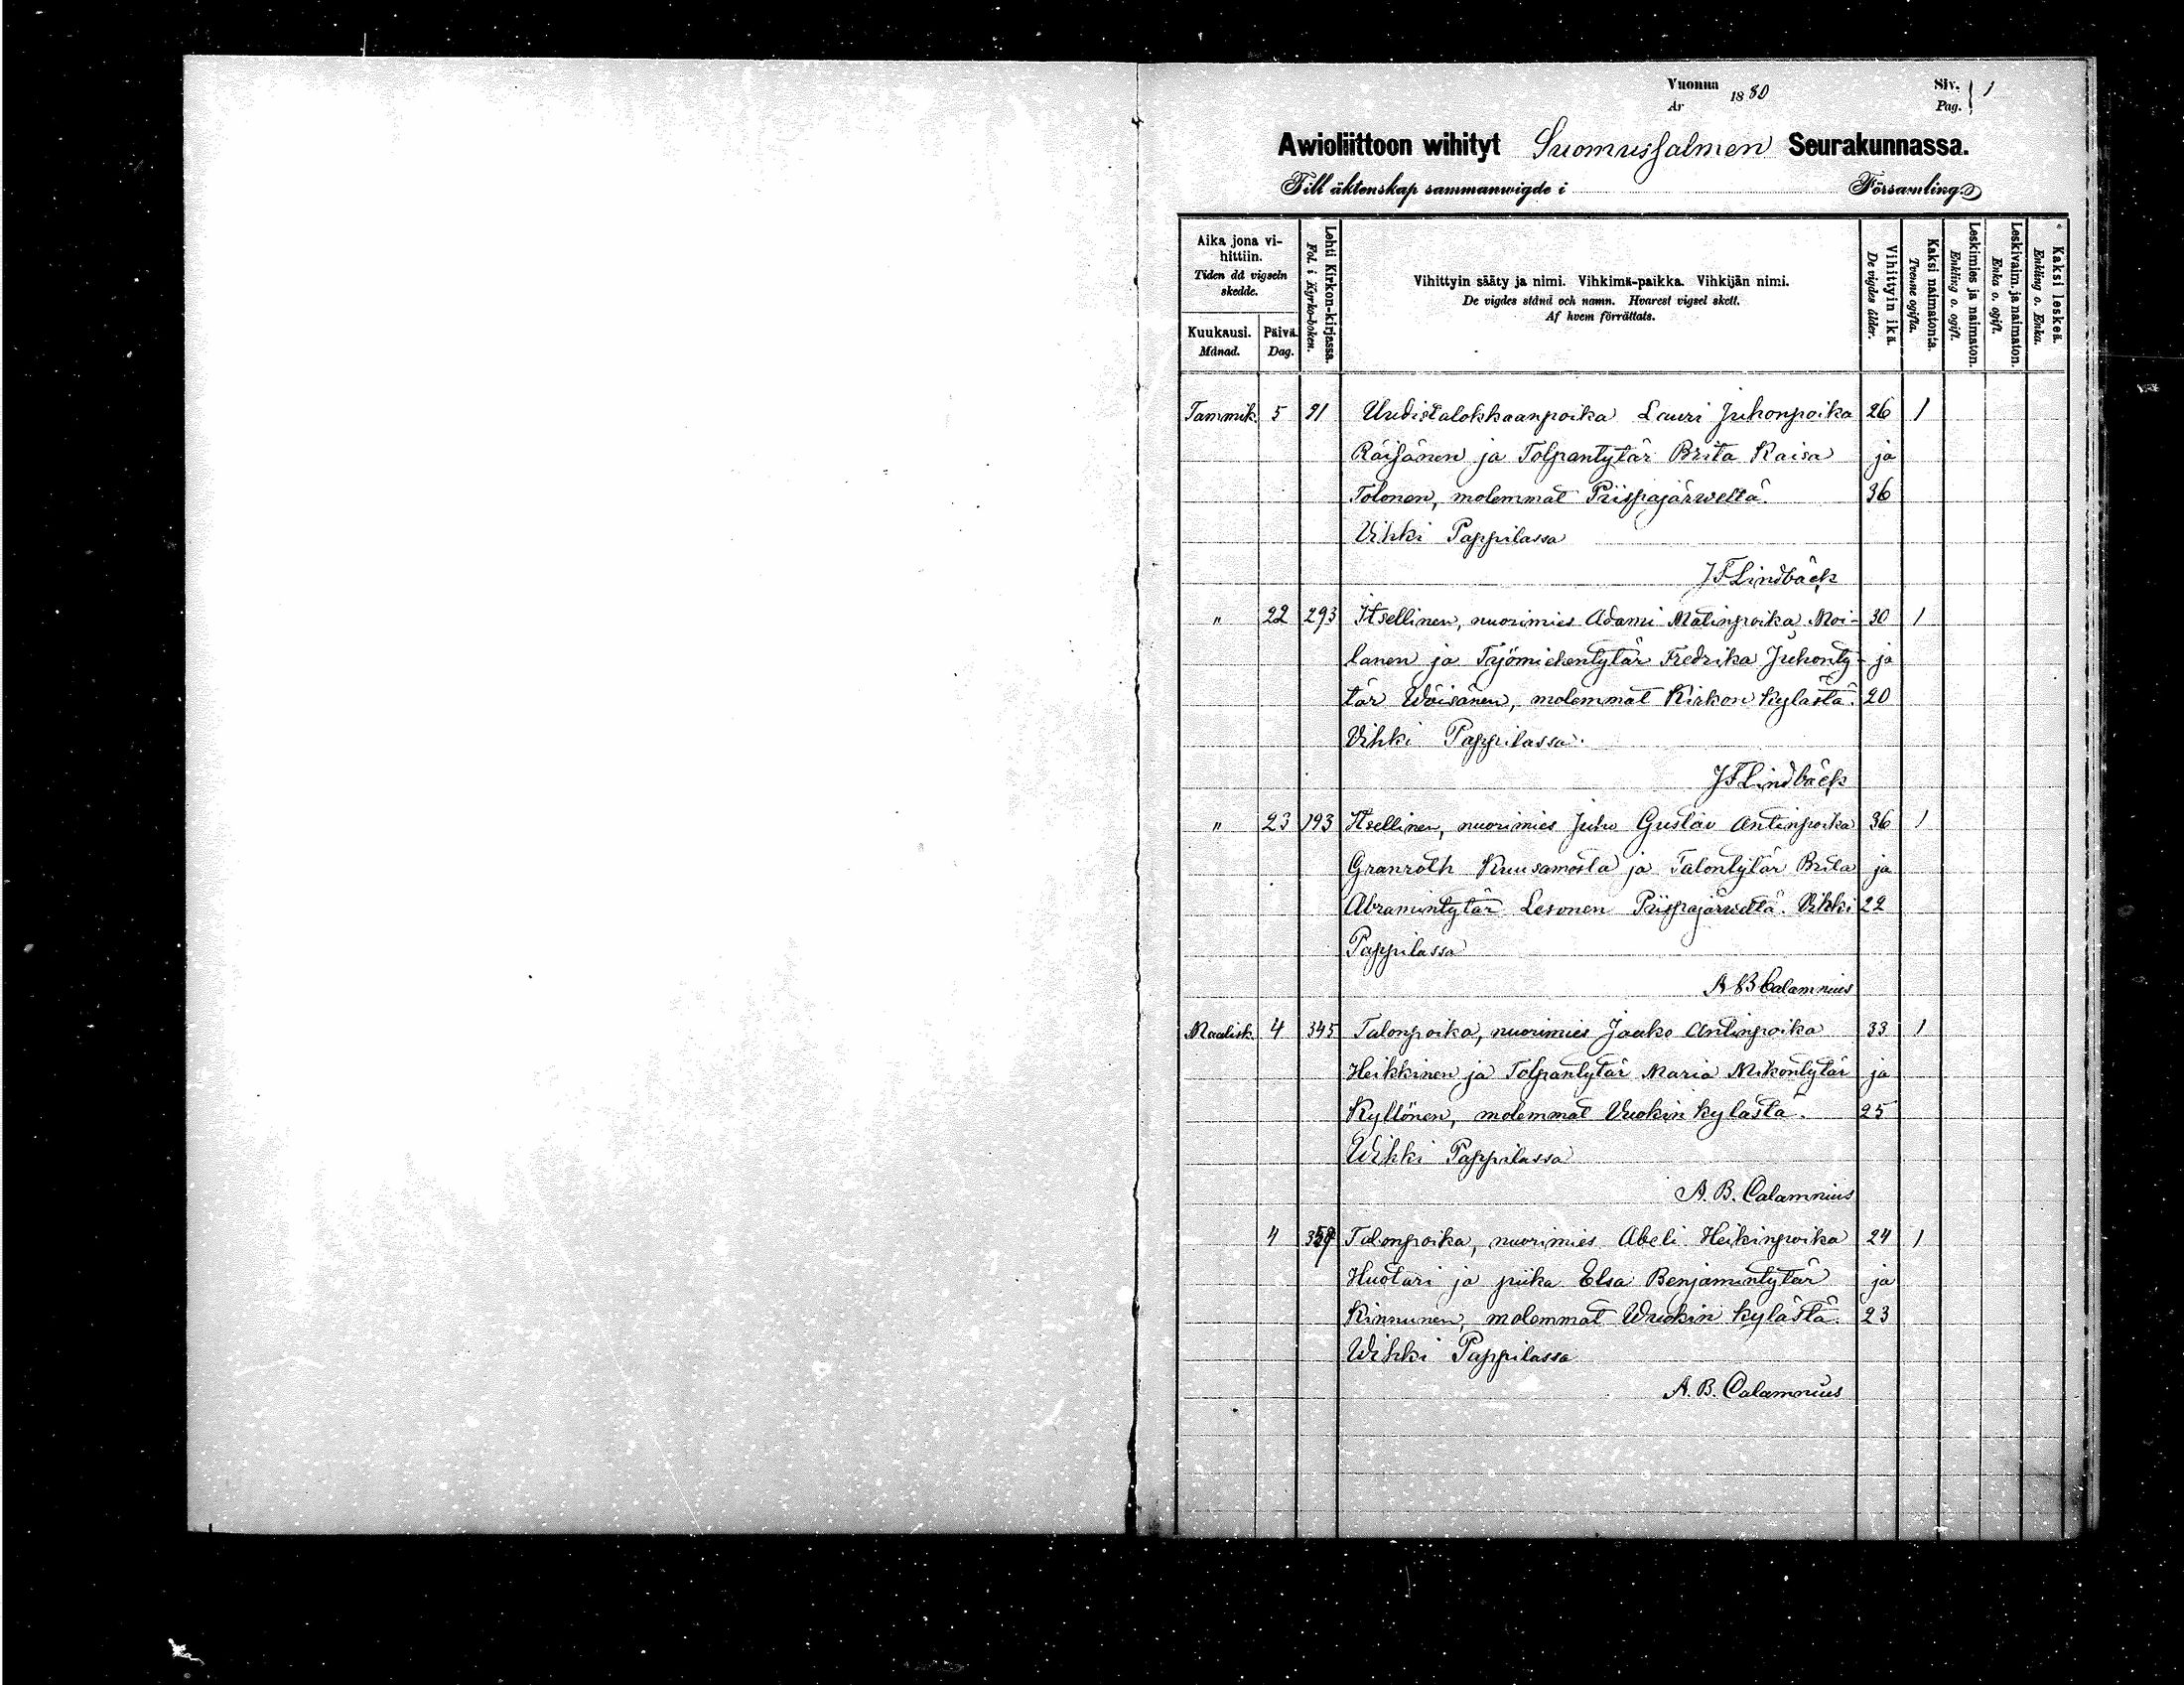 Vuonna 1880 Siv. 1
År Pag.
Awioliittoon wihityt Suomussalmen Seurakunnassa.
Till äktenskap sammanwigde i Församling.
Aika jona vihittiin.
Tiden då vigseln skedde.
Kuukausi. Månad.
Päivä. Dag.
Lehti Kirkon-kirjassa.
Fol. i Kyrko-boken.
Vihittyin sääty ja nimi. Vihkimä-paikka. Vihkijän nimi.
De vigdes stånd och namn. Hvarest vigsel skett.
Af hvem förrättats.
Vihittyin ikä.
De vigdes ålder.
Kaksi naimatonta.
Tvenne ogifta.
Leskimies ja naimaton.
Enkling o. ogift.
Leskivaim. ja naimaton.
Enka o. ogift.
Kaksi leskeä.
Enkling o. Enka.
Tammik. 5 91 Uudistalokkaanpoika Lauri Juhonpoika 26 1
Räisänen ja Tolpantytär Brita Kaisa ja
Tolonen, molemmat Piispajärweltä. 36
Vihki Pappilassa
J F Lindbäck
" 22 293 Itsellinen, nuorimies Adami Matinpoika Moi- 30 1
lanen ja Työmiehentytär Fredrika Juhonty- ja
tär Wäisänen, molemmat Kirkon kylästä. 20
Vihki Pappilassa.
J F Lindbäck
" 23 193 Itsellinen, nuorimies Juho Gustav Antinpoika 36 1
Granroth Kuusamosta ja Talontytär Brita ja
Abramintytär Lesonen Piispajärweltä. Vihki 22
Pappilassa
A B Calamnius
Maalisk. 4 345 Talonpoika, nuorimies Jaako Antinpoika 33 1
Heikkinen ja Tolpantytär Maria Mikontytär ja
Kyllönen, molemmat Vuokin kylästä. 25
Wihki Pappilassa
A. B. Calamnius
4 Talonpoika, nuorimies Abeli Heikinpoika 24 1
Huotari ja piika Elsa Benjamintytär ja
Kinnunen, molemmat Wuokin kylästä. 23
Wihki Pappilassa
A. B. Calamnius